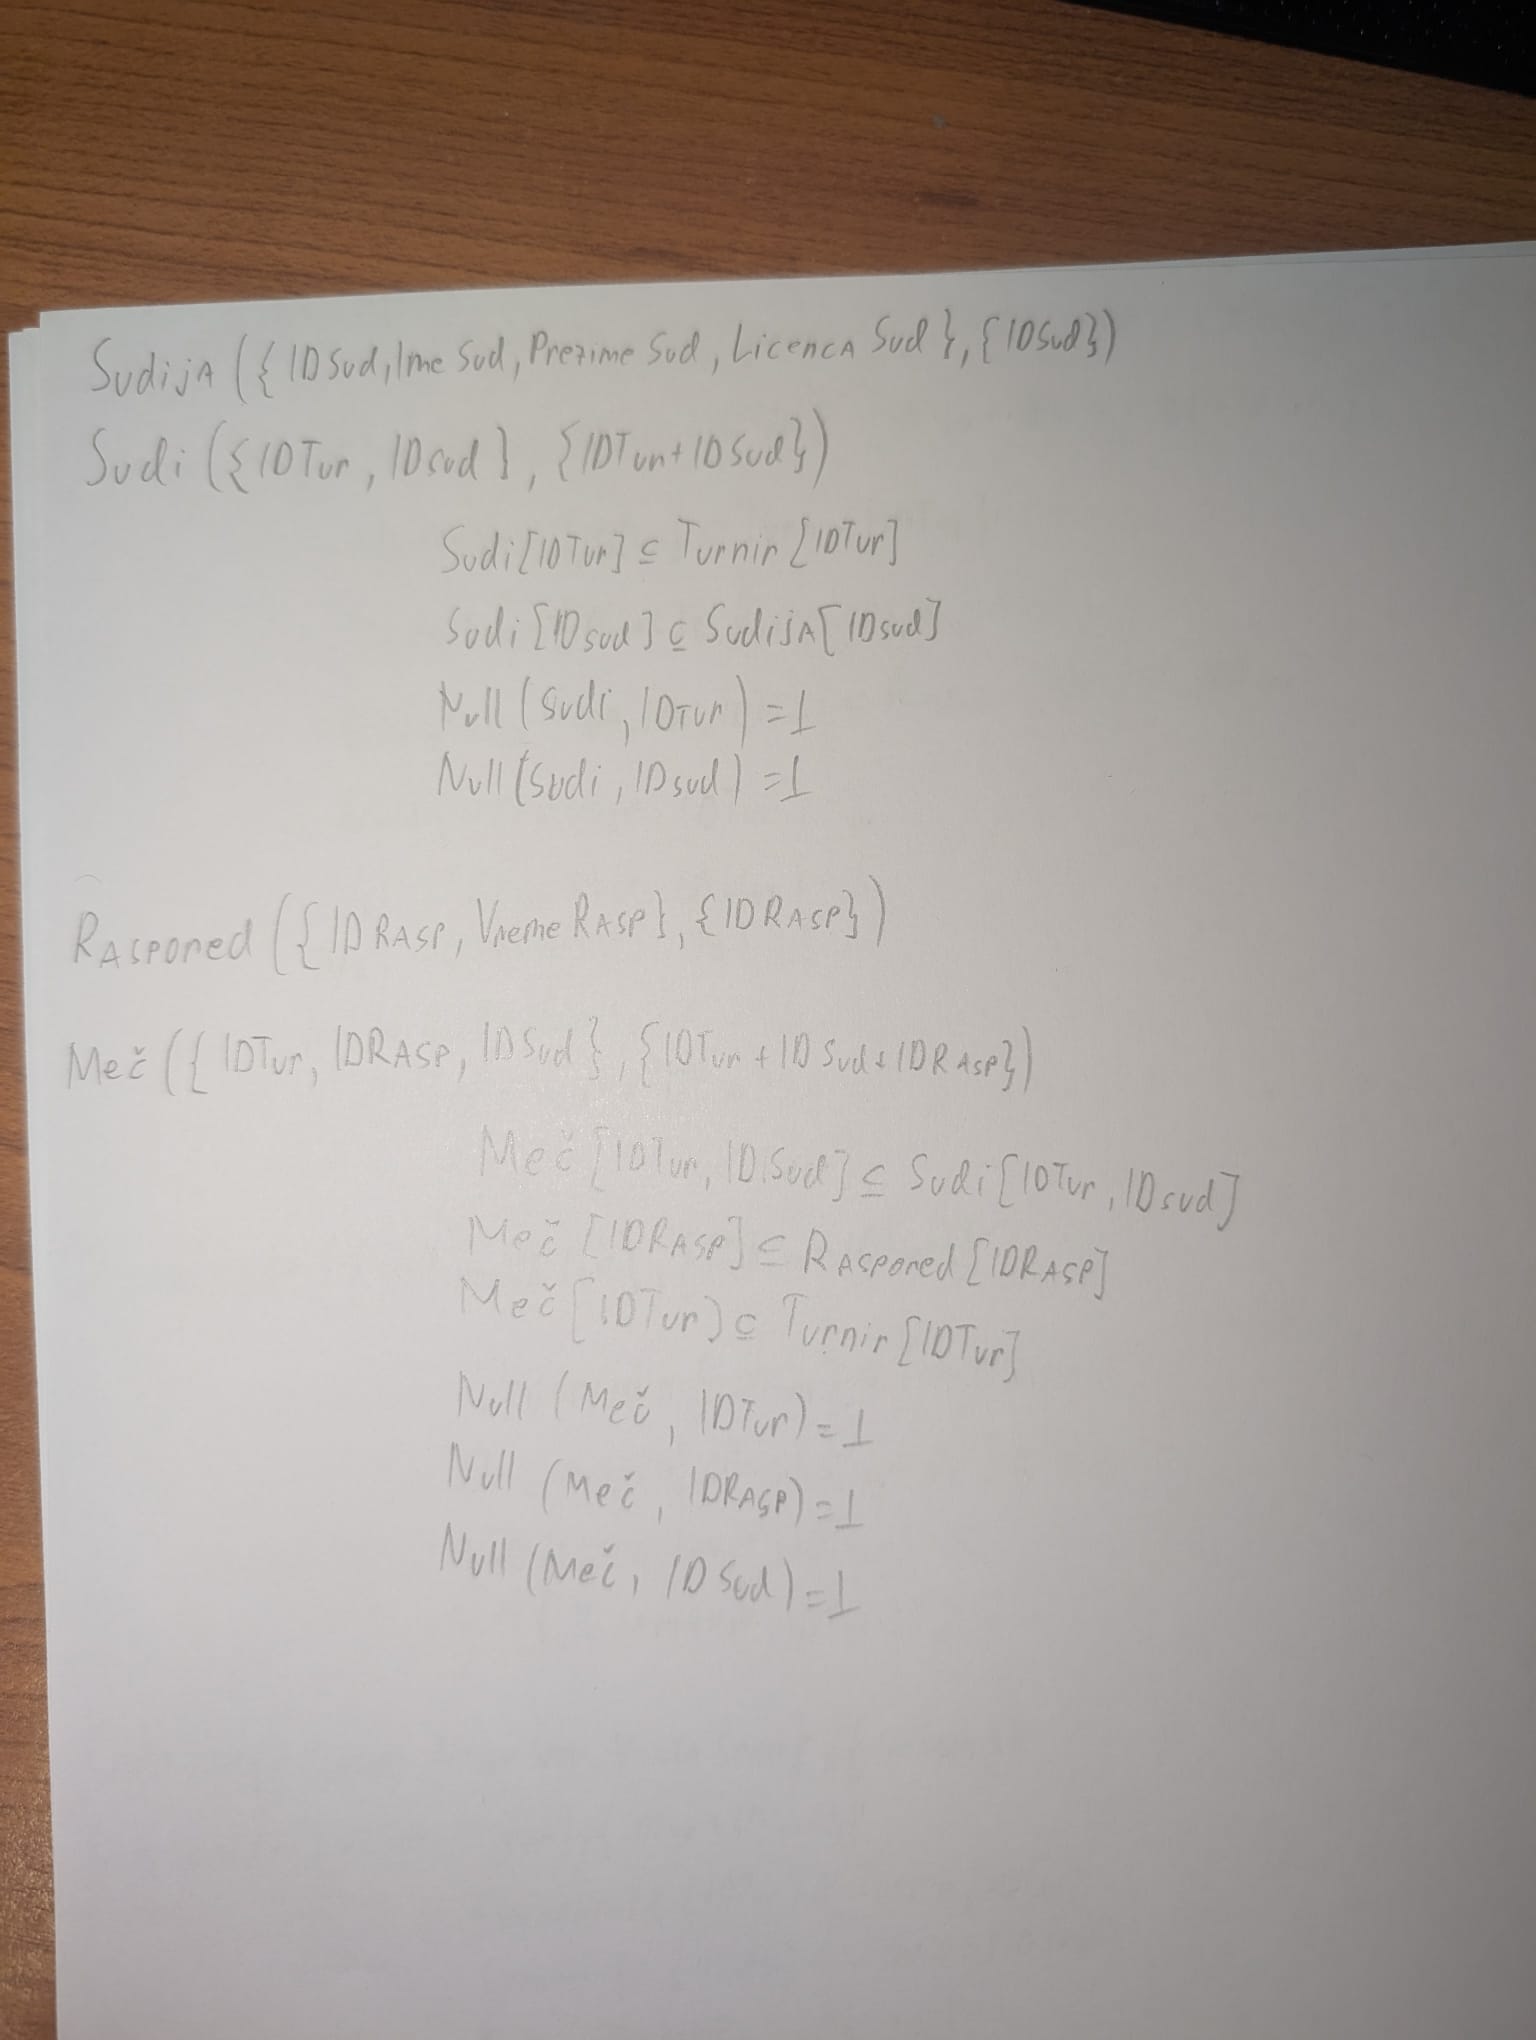 Sudija ({IDSud, Ime Sud, Prezime Sud, Licenca Sud}, {IDSud})
Sudi ({IDTur, IDsud}, {IDTur+IDSud})
Sudi[IDTur] ⊆ Turnir[IDTur]
Sudi[IDsud] ⊆ Sudija[IDsud]
Null(Sudi, IDTur) = ⊥
Null(Sudi, IDsud) = ⊥
Raspored ({IDRasp, Vreme Rasp}, {IDRasp})
Meč ({IDTur, IDRasp, IDSud}, {IDTur+IDSud+IDRasp})
Meč[IDTur, IDSud] ⊆ Sudi[IDTur, IDsud]
Meč[IDRasp] ⊆ Raspored[IDRasp]
Meč[IDTur) ⊆ Turnir[IDTur]
Null (Meč, IDTur) = ⊥
Null (Meč, IDRasp) = ⊥
Null (Meč, IDSud) = ⊥